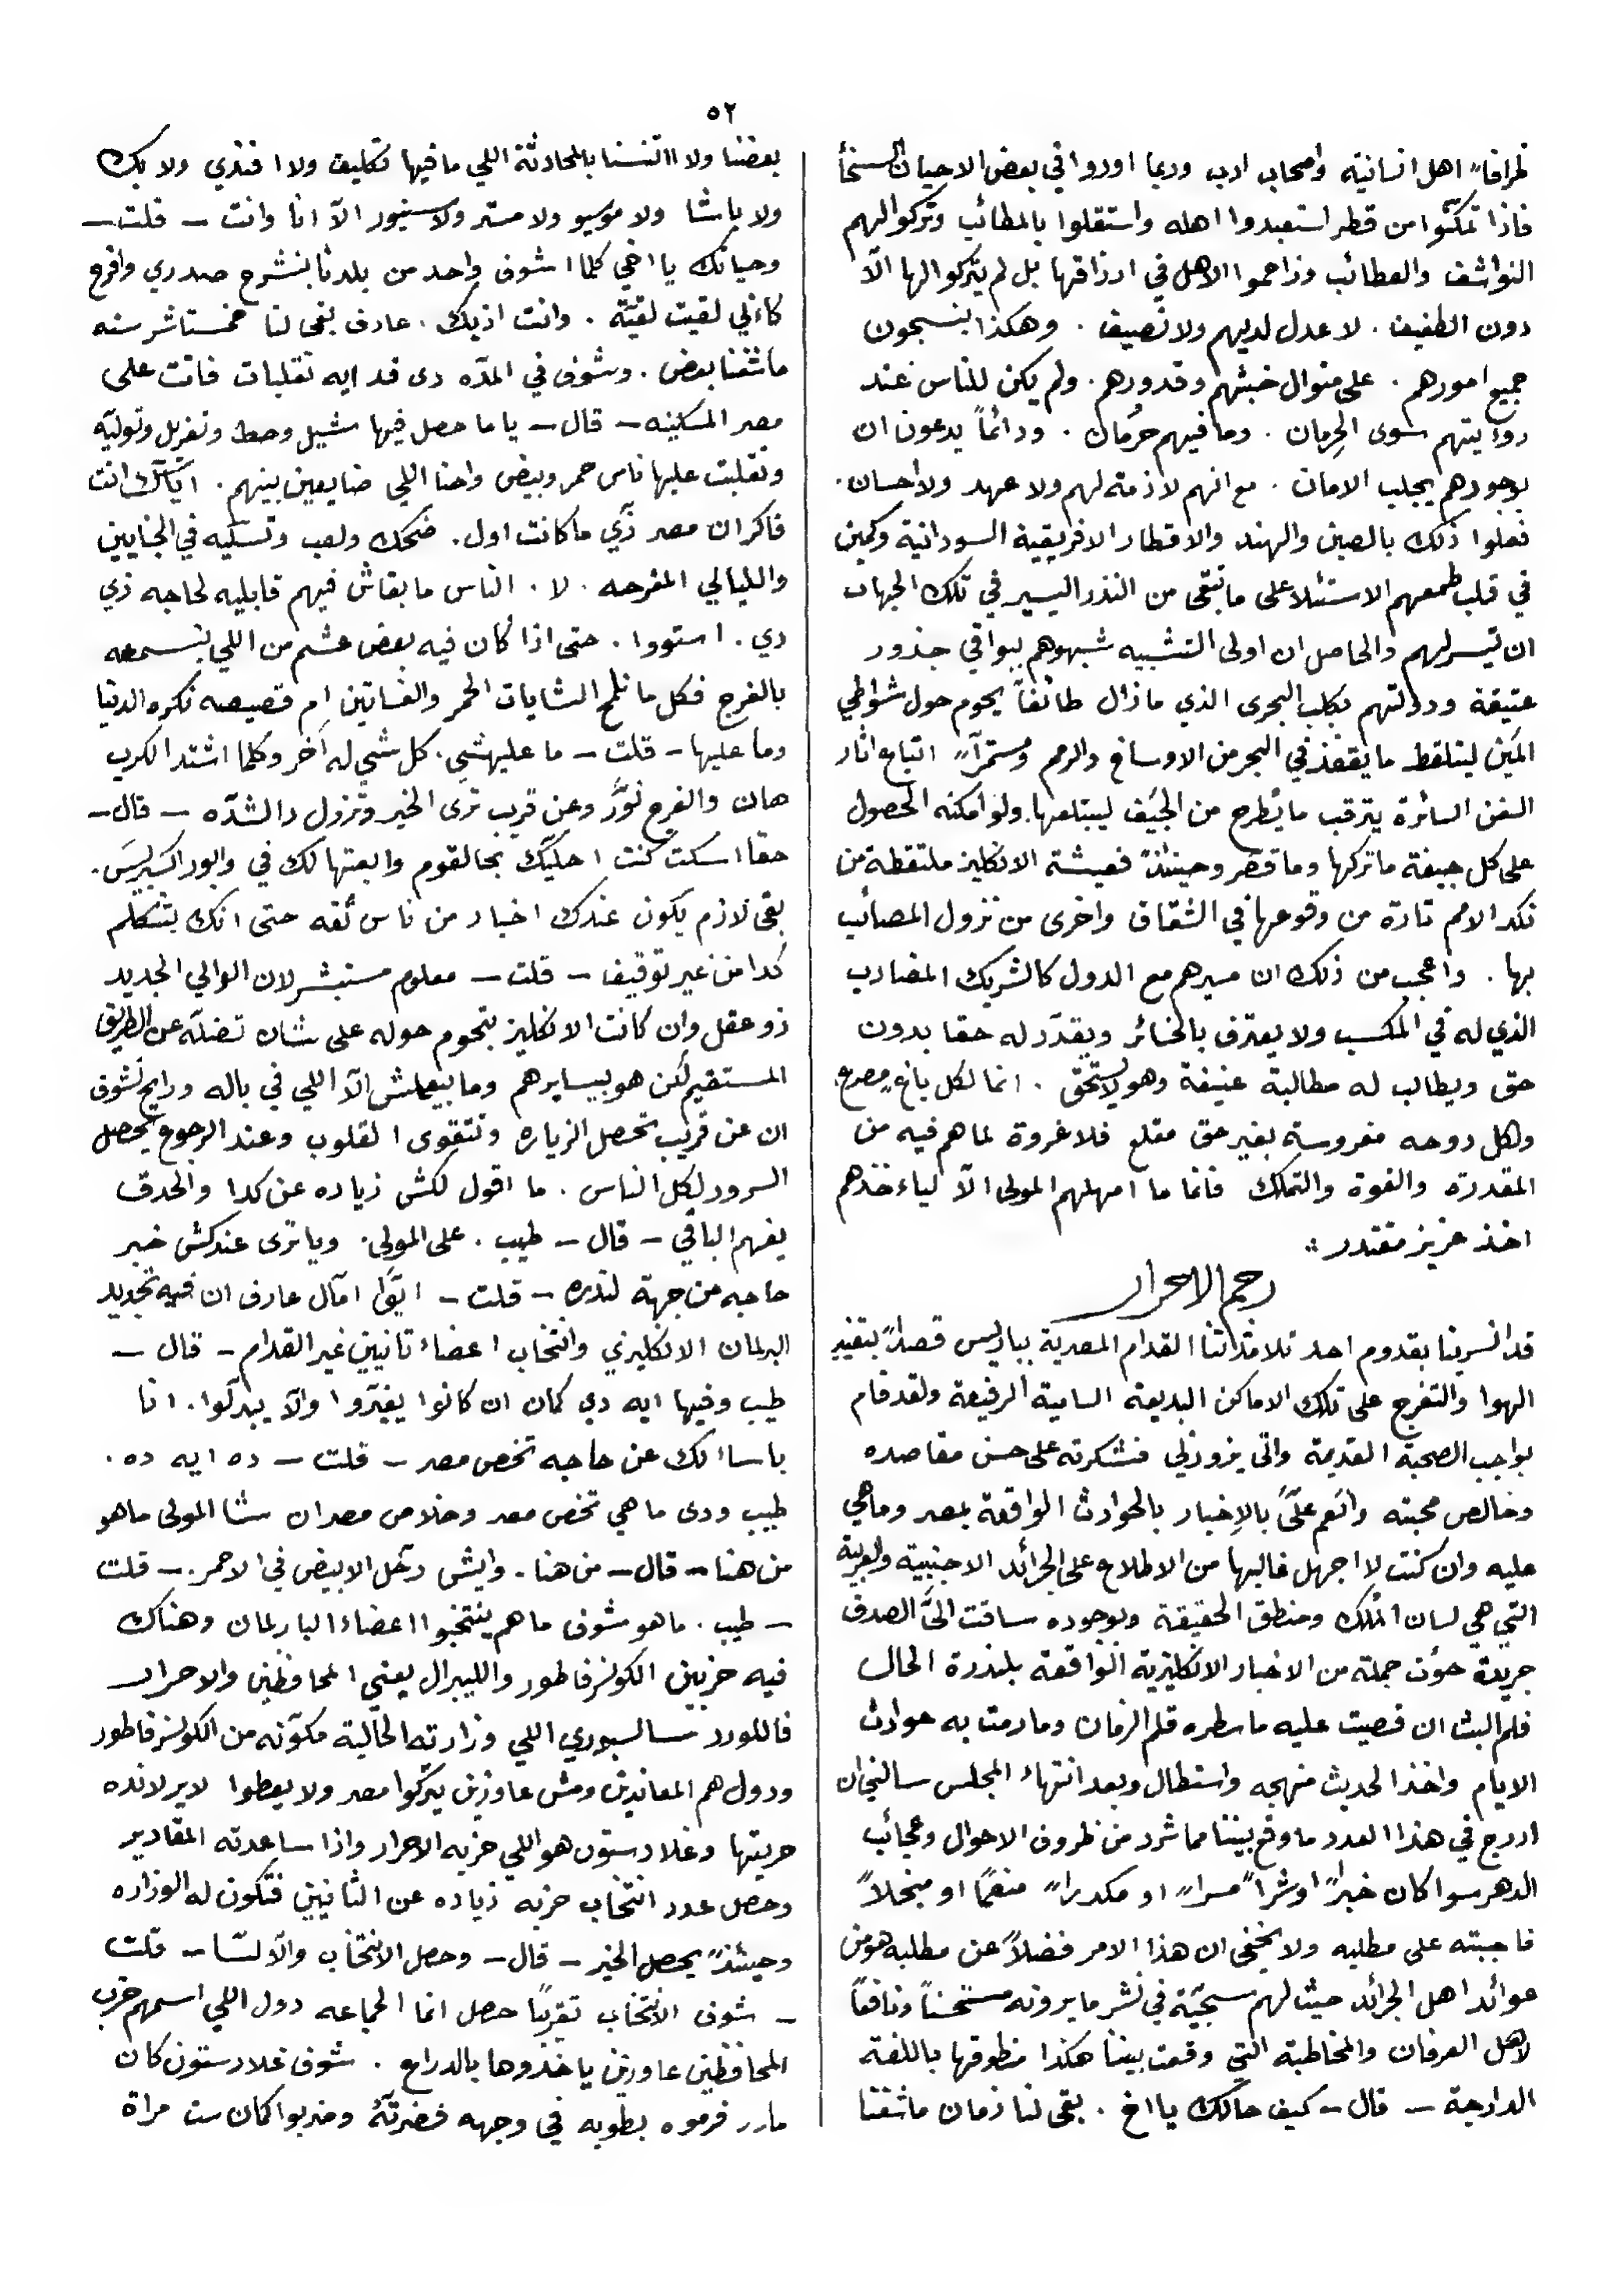 ٥٢
ظرافاً اهل انسانية واصحاب ادب وربما اوروا في بعض الاحيان السخأ
فاذا تمكنوا من قطر استعبدوا اهله واستقلوا بالمطائب وتركوا لهم
النواشف والعطائب وزاحموا الاهل في ارزاقها بل لم يتركوا لها الّا
دون الطفيف . لا عدل لديهم ولا نصيف . وهكذا ينسجون
جميع امورهم . على منوال خبثهم وقدورهم . ولم يكن للناس عند
روءيتهم سوى الحِرمان . وما فيهم حرُمان . ودائماً يدعون ان
بوجودهم يجلب الامان . مع انهم لا ذمته لهم ولا عهد ولا احسان .
فعلوا ذلك بالصين والهند والاقطار الافريقية السودانية وكمين
في قلب طمعهم الاستئلا على ما تبقى من النذر اليسير في تلك الجهات
ان تيسر لهم والحاصل ان اولى التشبيه شبهوهم ببواقي جذور
عتيقة ودولتهم بكلب البحرى الذي ما زال طائفاً يحوم حول شواطي
المين ليتلقط ما يقفذ في البحر من الاوساخ والرمم ومستمرآً اتباع اثار
السفن السائرة يترقب ما يُطرح من الجيَف ليبتلعها. ولو امكنه الحصول
على كل جيفة ما تركها وما قصر وحينئذٍ فعيشة الانكليز ملتقطة من
نكد الامم تارة من وقوعها في الشقاق واخرى من نزول المصائب
بها . واعجب من ذلك ان سيرهم مع الدول كالشريك المضارب
الذي له في المكسب ولا يعترف بالخسائر ويقدّر له حقا بدون
حق ويطالب له مطالبة عنيفة وهو لا يستحق . انما لكل باغٍ مصرع
ولكل دوحه مغروسة بغير حق مقلع فلا غروة لما هم فيه من
المقدرة والقوة والتملك فانما ما امهلهم المولى الّا لياءخذهم
اخذ عزيز مقتدر .
رحم الاحرار
قد انسرينا بقدوم احد تلامذاتنا القدام المصرية بباريس قصداً بتغيير
الهوا والتفرج على تلك الاماكن البديعة السامية الرفيعة ولقد قام
بواجب الصحبة القديمة واتى يزورني فشكرته على حسن مقاصده
وخالص محبته وانعم علىَّ بالاِخبار بالحوادث الواقعة بمصر وما هي
عليه وان كنت لا اجهل غالبها من الاطلاع على الجرائد الاجنبية والعربية
التي هي لسان الملك ومنطق الحقيقة وبوجوده ساقت الىَّ الصدف
جريدة حوَت جملة من الاخبار الانكليزية الواقعة بلندرة الحال
فلم البث ان قصيت عليه ما سطره قلم الزمان وما رمت به حوادث
الايام واخذ الحديث منهجه واستطال وبعد انتهاء المجلس سالني ان
ادرج في هذا العدد ما وقع بيننا مما شرد من ظروف الاحوال وعجائب
الدهر سوا كان خيراً او شراً مسراً او مكدراً منعّماً او مبخلاً
فاجبته على مطلبه ولا يخفى ان هذا الامر فضلاً عن مطلبه هو من
عوائد اهل الجرائد حيث لهم سجيّة في نشر ما يرونه مستحسناً ونافعاً
لاهل العرفان والمخاطبة التي وقعت بيننا هكذا منطوقها باللغة
الدارجة — قال — كيف حالك يا اخ . بقى لنا زمان ما شفنا
بعضنا ولا اتنسنا بالمحادثة اللي ما فيها تكليف ولا افندي ولا بك
ولا باشا ولا موسيو ولا مستر ولا سنيور الّا انا وانت — قلت —
وحياتك يا اخي كلما اشوف واحد من بلدنا بنشرح صدري وافرح
كاءني لقيت لقيّة . وانت اذيك . عارف بقى لنا خمستاشر سنه
ما شفنا بعض . وشوف في المدّه دى قد ايه تقلبات فاتت على
مصر المسكينه — قال — يا ما حصل فيها شيل وحط وتغريل وتوليّه
وتقلبت عليها ناس حمر وبيض واحنا اللي ضايعين بينهم . ايّاك انت
فاكر ان مصر زَي ما كانت اول . ضحك ولعب وتسليه في الجنايين
والليالي المفرحه . لا . الناس ما بقاش فيهم قابليه لحاجه زي
دي . استووا . حتى اذا كان فيه بعض عشم من اللي بنسمعه
بالفرج فكل ما نلمح الشايات الحمر والفساتين ام قصيصه نكره الدنيا
وما عليها — قلت — ما عليهشي . كل شي له آخر وكلما اشتد الكرب
هان والفرج نوَّر وعن قريب ترى الخير وتزول دا الشدّه — قال —
حقا اسكت كنت احليّك بحالقوم وابعتها لك في وابور اكسبريسَ .
بقى لازم يكون عندك اخبار من ناس ثقه حتى انك بتتكلم
كدا من غير توقيف — قلت — معلوم مستبشر لان الوالي الجديد
ذو عقل وان كانت الانكليز بتحوم حوله على شان تضلّه عن الطريق
المستقيم لكن هو بيسايرهم وما بيعملش الّا اللي في باله ورايح نشوف
ان عن قريب تحصل الزياره وتتقوى القلوب وعند الرجوع يحصل
السرور لكل الناس . ما اقول لكش زياده عن كدا والحدق
يفهم الباقي — قال — طيب . على المولى . ويا ترى عندكش خبر
حاجه من جهة لندره — قلت — ايَّوا امآل عارف ان فيه تجديد
البرلمان الانكليزي وانتخاب اعضاء تانيين غير القدام — قال —
طيب وفيها ايه دي كمان ان كانوا يغيّروا والّا يبدّلوا . انا
باساءلك عن حاجه تخص مصر — قلت — ده ايه ده .
طيب ودى ما هي تخص مصر وخلاص مصر ان شا المولى ما هو
من هنا — قال — من هنا . وايش دخّل الابيض في الاحمر . — قلت
— طيب . ما هو شوف ما هم ينتخبوا اعضاء البارلمان وهناك
فيه حزبين الكونزفاطور والليبرال يعني المحافظين والاحرار
فاللورد سالسبوري اللي وزارته الحاليّة مكوّنه من الكونزفاطور
ودول هم المعاندين ومش عاوزين يتركوا مصر ولا يعطوا لايرلانده
حريتها وغلادستون هو اللي حزبه الاحرار واذا ساعدته المقادير
وحصل عدد انتخاب حزبه زياده عن الثانيين فتكون له الوزاره
وحينئذٍ يحصل الخير — قال — وحصل الانتخاب والّا لسّا — قلت
— شوف الانتخاب تقريباً حصل انما الجماعه دول اللي اسمهم حزب
المحافظين عاوزين ياخذوها بالدراع . شوف غلادستون كان
مارر فرموه بطوبه في وجهه فضرّتهُ وضربوا كمان ست مراة